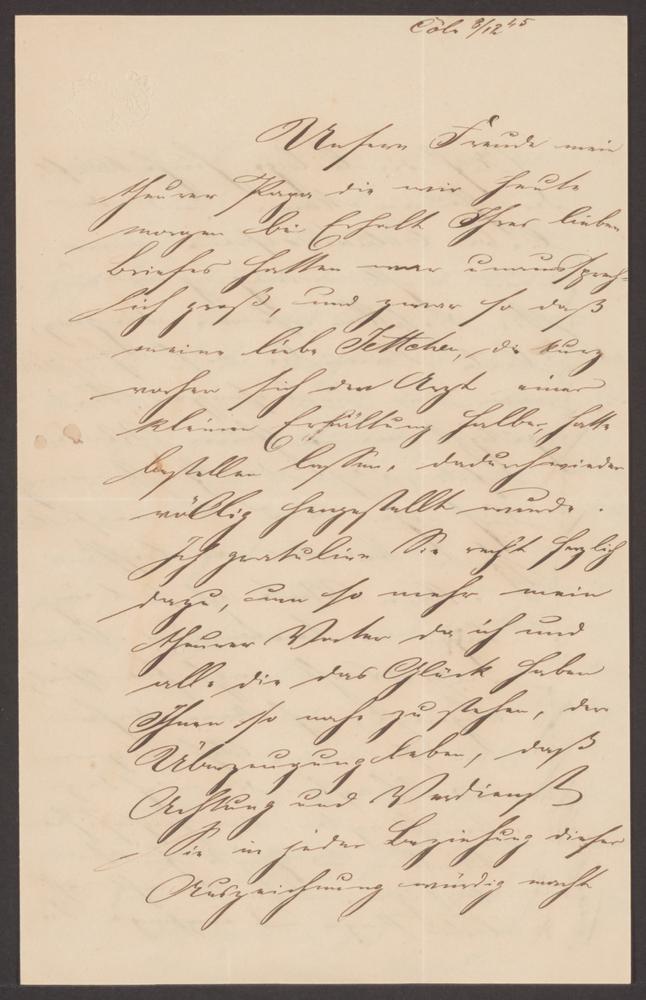 Cöln 8/12 45
Unsere Freude mein
theurer Papa die wir heute
morgen bei Erhalt Ihres lieben
Briefes hatten war unaussprech-
lich groß, und zwar so daß
meine liebe Jettchen, die kurz
vorher sich den Arzt einer
kleinen Erkältung halber, hatte
bestellen lassen, dadurch wieder
völlig hergestellt wurde.
Ich gratulire Sie recht herzlich
dazu, um so mehr mein
theurer Vater da ich und
alle die das Glück haben
Ihnen so nahe zu stehen, der
Überzeugung leben, daß
Achtung und Verdienst
Sie in jeder Beziehung dieser
Auszeichnung würdig macht